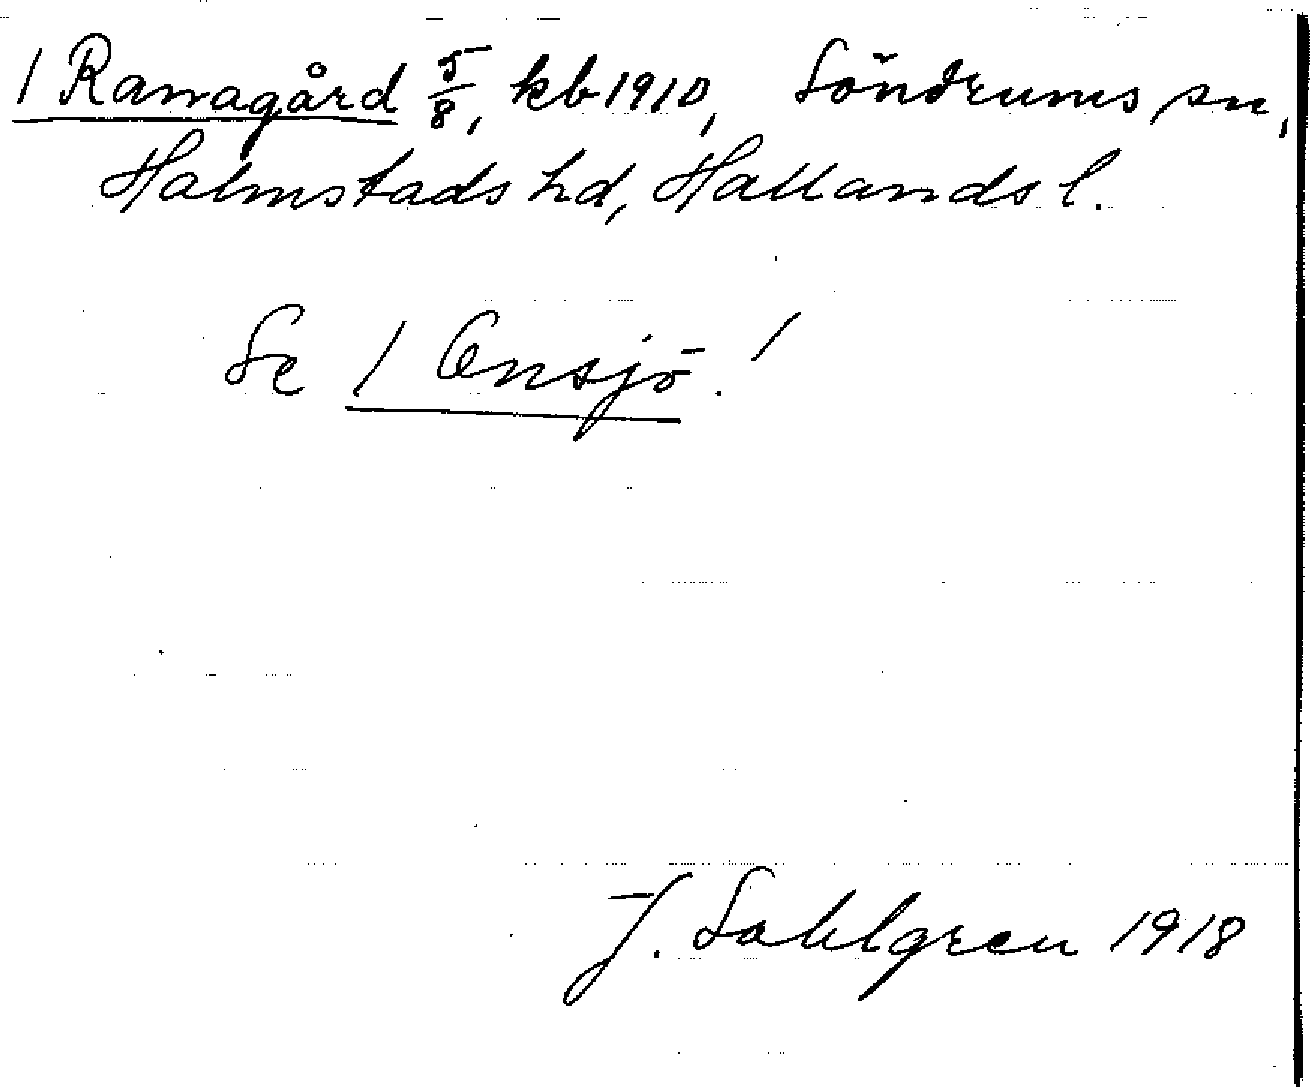 1 Ranagård 5/8, kb 1910, Söndrums sn,
Halmstads hd, Hallands l.
Se 1 Onsjö!
J. Sahlgren 1918